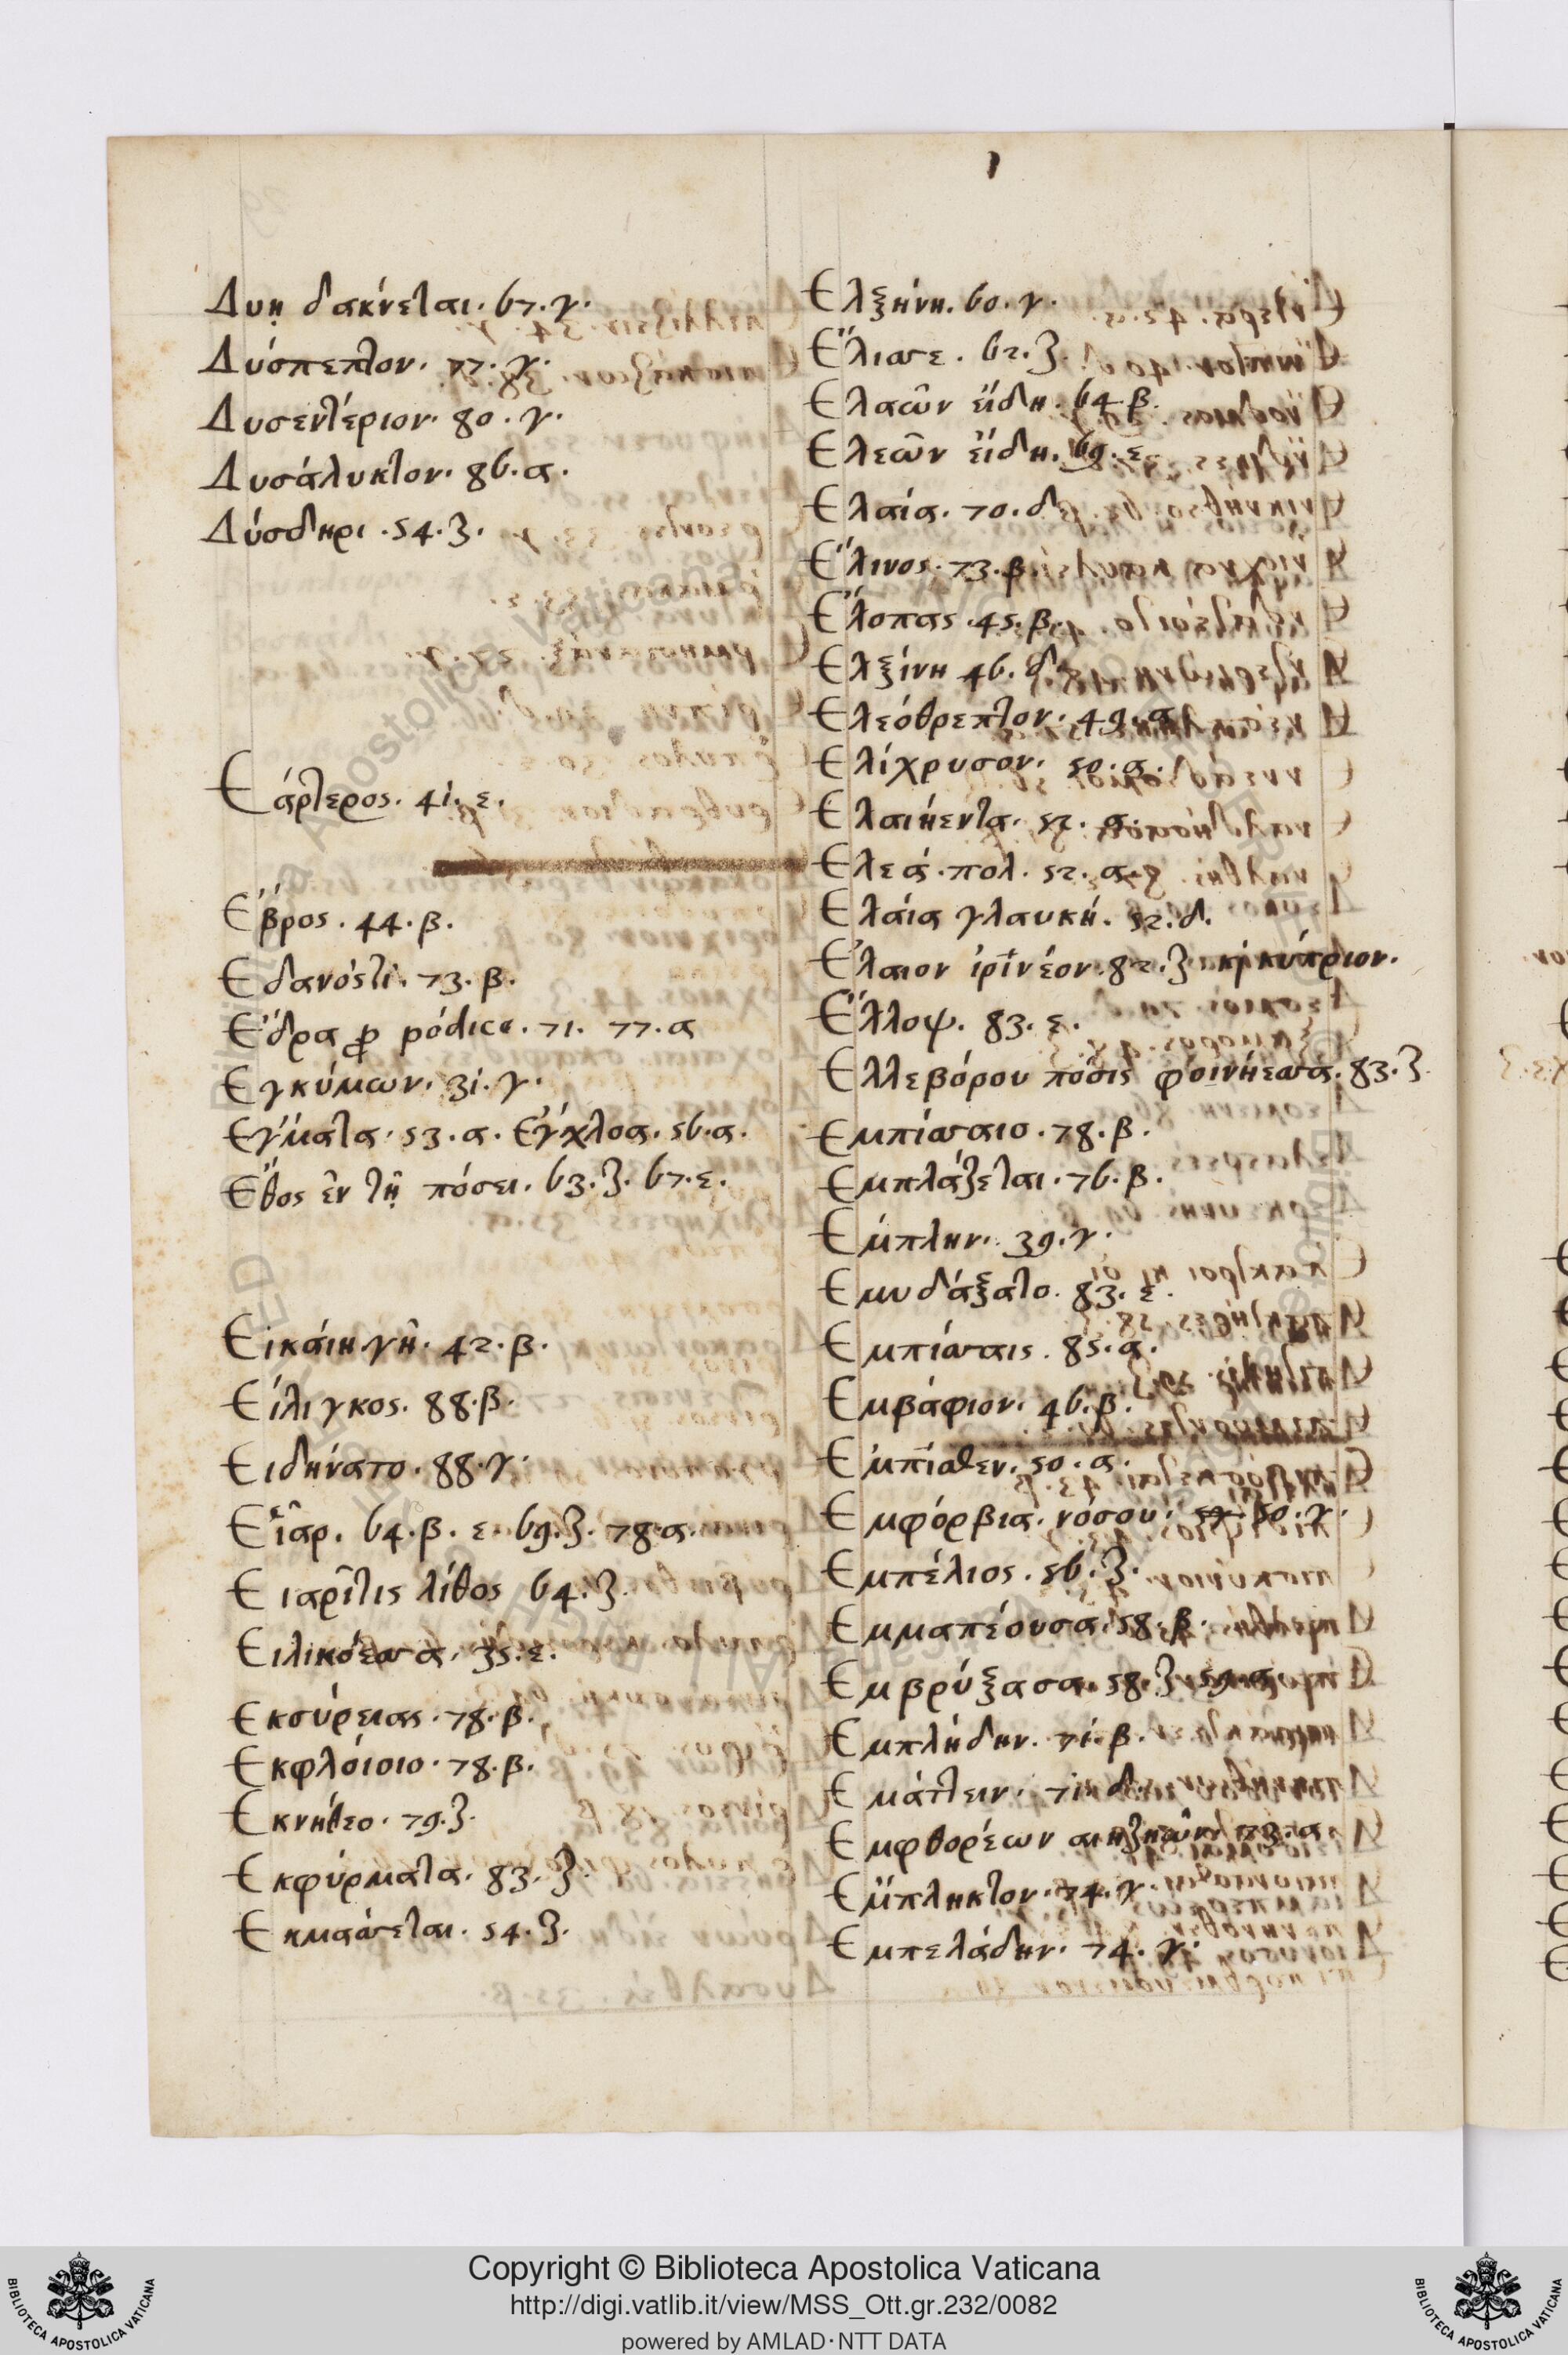 Δυη δακνεται. 67. γ.
Δύσπεπτον. 77. γ.
Δυσεντέριον. 80. γ.
Δυσάλυκτον. 86. α.
Δύσδηρι. 54. ζ.
Εάρτερος. 41. ε.
Εβρος. 44. β.
73. β.
Εδρα ρόdice. 71. 77. α
Εγκύμων. 31. γ.
Εγματα. 53. α. Εγχλοα. 56. α.
Εθος ἐν τῇ πόσει. 63. ζ. 67. ε.
Εικάιη γῆ. 42. β.
Είλιγκος. 88. β.
Ειδήνατο. 88. γ.
Εἶαρ. 64. β. ε. 69. ζ. 78. α.
Ειαρῖτις λίθος 64. ζ.
Ειλικόεσσα. 35. ε.
Εκσύρειας. 78. β.
Εκφλόιοιο. 78. β.
Εκνήθεο. 79. ζ.
Εκφύρματα. 83. ζ.
Εκμάσσεται. 54. ζ.
Ελξήνη. 60. γ.
Ελιασε. 62. ζ.
Ελαῶν ἔιδη. 64. β.
Ελεῶν ἔιδη. 69. ε.
Ελαία. 70. δ
Ελινος. 73. β.
Ελοπας. 45. β.
Ελξίνη 46. δ.
Ελεόθρεπτον. 49. α
Ελίχρυσον. 50. α.
Ελαιήεντα. 52. α.
Ελεά. πολ. 52. α.
Ελάια γλαυκή. 52. δ.
Ελαιον ἰρίνέον. 82. ζ κὶ κύπριον.
Ελλοψ. 83. ε.
Ελλεβόρου πόσις φοινήεσσα. 83. ζ
Εμπίσσαιο. 78. β.
Εμπλάζεται. 76. β.
Εμπλην. 39. γ.
Εμυδάξατο. 83. ε.
Εμπίσσαις. 85. α.
Εμβάφιον. 46. β.
Εμπίσθεν. 50. α.
Εμφόρβια. νόσου. 50. γ.
Εμπέλιος. 56. ζ.
Εμμαπέουσα. 58. β.
Εμβρύξασα. 58. ζ 59. α.
Εμπλήδην. 71. β.
Εμάττειν. 71. δ.
Εμφθορέων αιζηῶν 73. α.
Εμπληκτον. 74. γ.
Εμπελάδην. 74. γ.
Copyright © Biblioteca Apostolica Vaticana
http://digi.vatlib.it/view/MSS_Ott.gr.232/0082
powered by AMLAD·NTT DATA
BIBLIOTECA APOSTOLICA VATICANA
BIBLIOTECA APOSTOLICA VATICANA